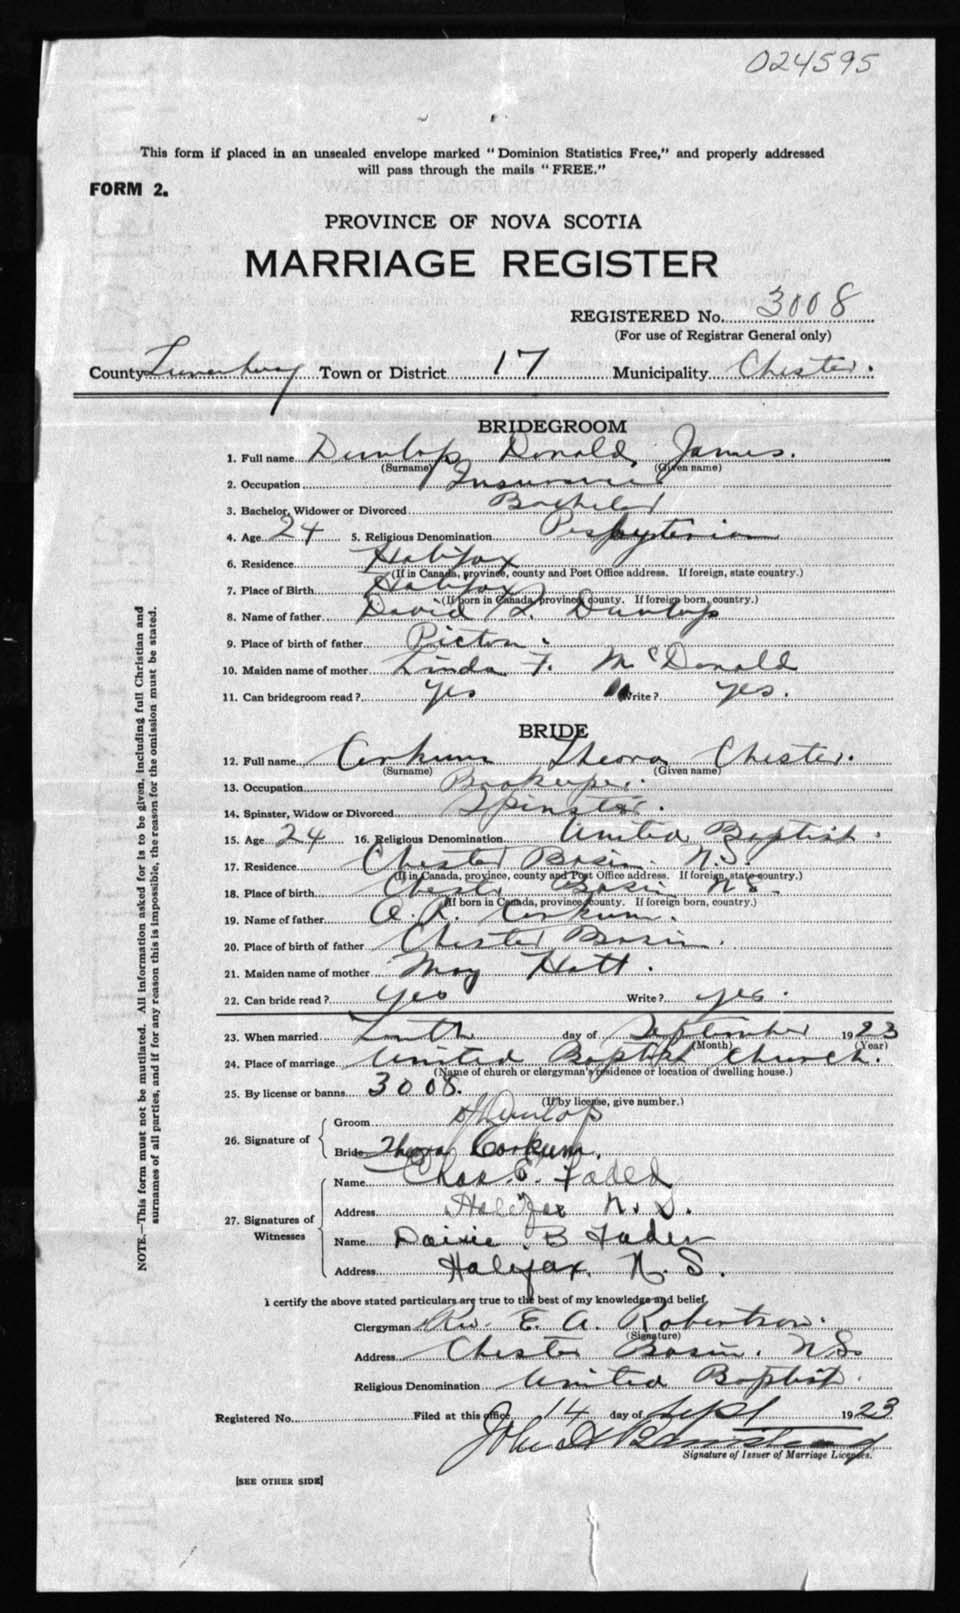 024595
This form if placed in an unsealed envelope marked "Dominion Statistics Free," and properly addressed
will pass through the mails "FREE."
FORM 2.
PROVINCE OF NOVA SCOTIA
MARRIAGE REGISTER
REGISTERED No. 3008
(For use of Registrar General only)
County Lunenburg Town or District 17 Municipality Chester.
BRIDEGROOM
1. Full name Dunlop Donald James.
(Surname) (Given name)
2. Occupation Insurance
3. Bachelor, Widower or Divorced Bachelor
4. Age 24 5. Religious Denomination Presbyterian
6. Residence Halifax
(If in Canada, province, county and Post Office address. If foreign, state country.)
7. Place of Birth Halifax
(If born in Canada, province, county. If foreign born, country.)
8. Name of father David Dunlop
9. Place of birth of father Pictou.
10. Maiden name of mother Linda F. McDonald
11. Can bridegroom read? yes Write? yes.
BRIDE
12. Full name Corkum Theora Chester.
(Surname) (Given name)
13. Occupation Bookeeper.
14. Spinster, Widow or Divorced Spinster.
15. Age 24 16. Religious Denomination United Baptist.
17. Residence Chester Basin. N.S.
(If in Canada, province, county and Post Office address. If foreign, state country.)
18. Place of birth Chester Basin N.S.
(If born in Canada, province, county. If foreign born, country.)
19. Name of father Corkum.
20. Place of birth of father Chester Basin.
21. Maiden name of mother May Hatt.
22. Can bride read? yes Write? yes.
23. When married Tenth day of September 1923
(Month) (Year)
24. Place of marriage United Baptist Church.
(Name of church or clergyman's residence or location of dwelling house.)
25. By license or banns 3008.
(If by license, give number.)
26. Signature of
Groom Dunlop
Bride Theora Corkum.
27. Signatures of Witnesses
Name Chas. E. Fader
Address Halifax N.S.
Name B Fader
Address Halifax. N.S.
I certify the above stated particulars are true to the best of my knowledge and belief.
Clergyman Rev. E. A. Robertson.
(Signature)
Address Chester Basin. N.S.
Religious Denomination United Baptist.
Registered No. Filed at this office 14 day of Sept 1923
John
Signature of Issuer of Marriage Licenses.
[SEE OTHER SIDE]
NOTE.—This form must not be mutilated. All information asked for is to be given, including full Christian and
surnames of all parties, and if for any reason this is impossible, the reason for the omission must be stated.